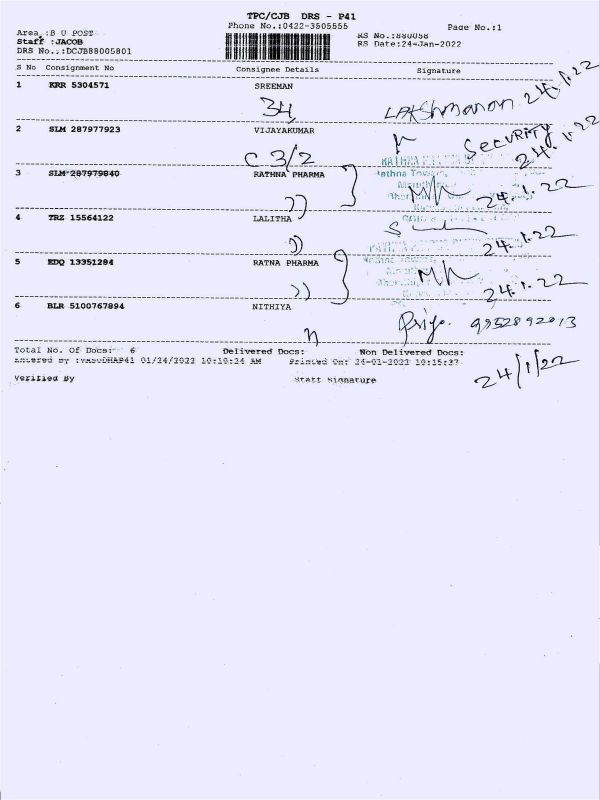 TPC/CJB DRS - P41
Phone No.:0422-3505555 Page No.:1
Area :B U POST
Staff :JACOB
DRS No.,:DCJB88005801
RS No.:880058
RS Date:24-Jan-2022
S No Consignment No Consignee Details Signature
1 KRR 5304571 SREEMAN
34 Lakshmanan 24.1.22
2 SLM 287977923 VIJAYAKUMAR
SECURITY
C 3/2 24.1.22
3 SLM 287979840 RATHNA PHARMA
24.1.22
4 TRZ 15564122 LALITHA
24.1.22
5 EDQ 13351284 RATNA PHARMA
24.1.22
6 BLR 5100767894 NITHIYA
Priya. 9952892013
Total No. Of Docs: 6 Delivered Docs: Non Delivered Docs:
Entered By :VASUDHAP41 01/24/2022 10:10:24 AM Printed On: 24-01-2022 10:15:37
24/1/22
Verified By Staff Signature